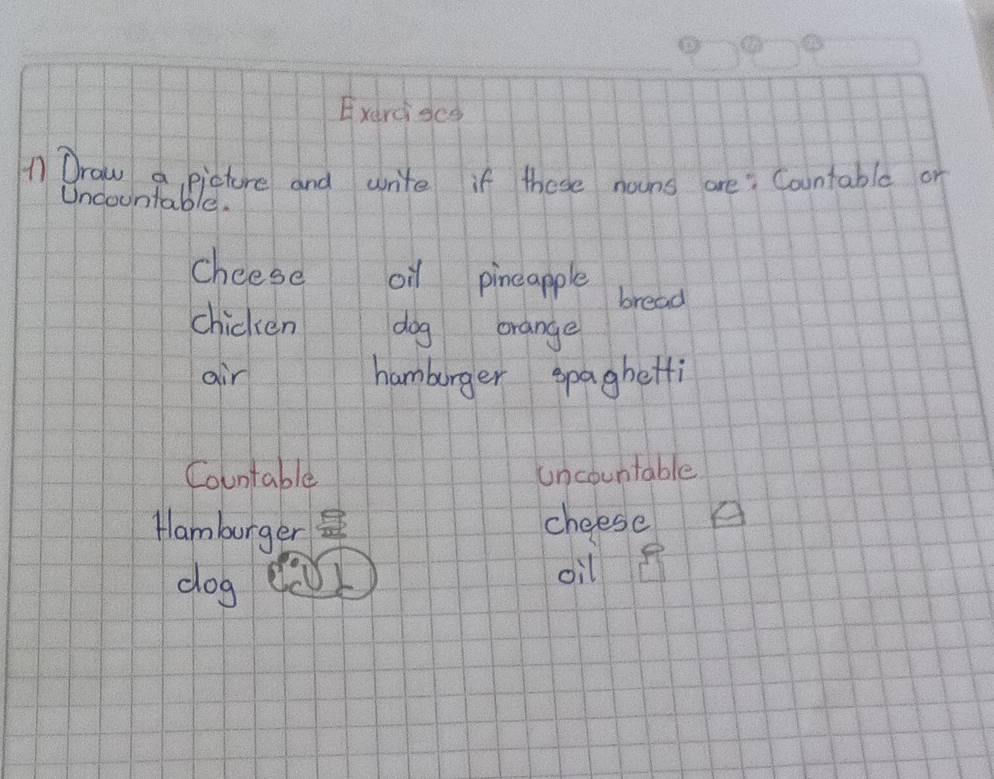 Exercises
1) Draw a picture and write if these nouns are: Countable or
Uncountable.
Cheese oil pineapple bread
chicken dog orange
air hamburger spaghetti
Countable uncountable
Hamburger cheese
dog oil